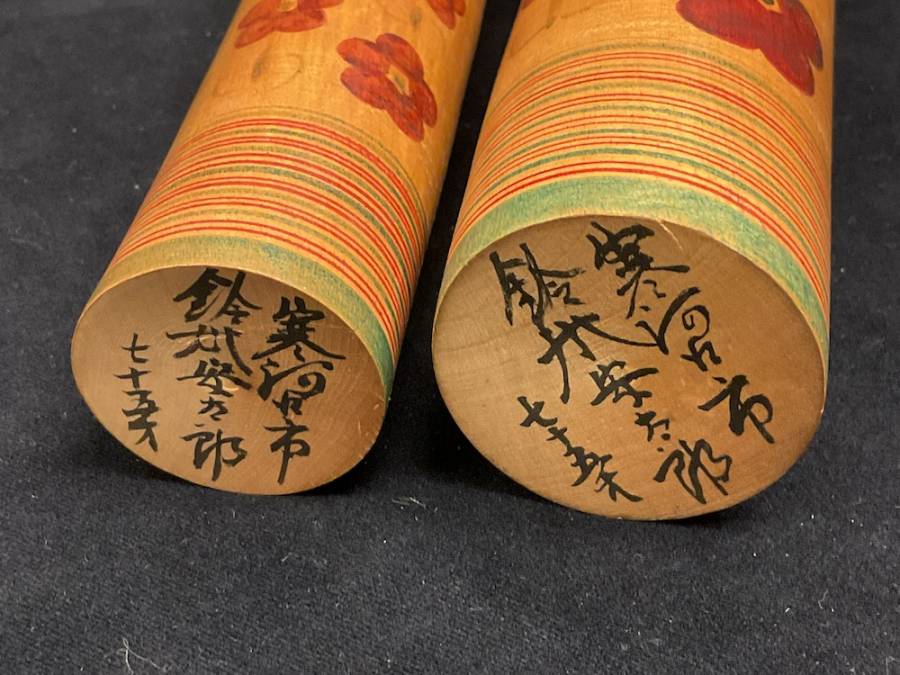 寒河江市
鈴木安太郎
七十五才
寒河江市
鈴木安太郎
七十五才